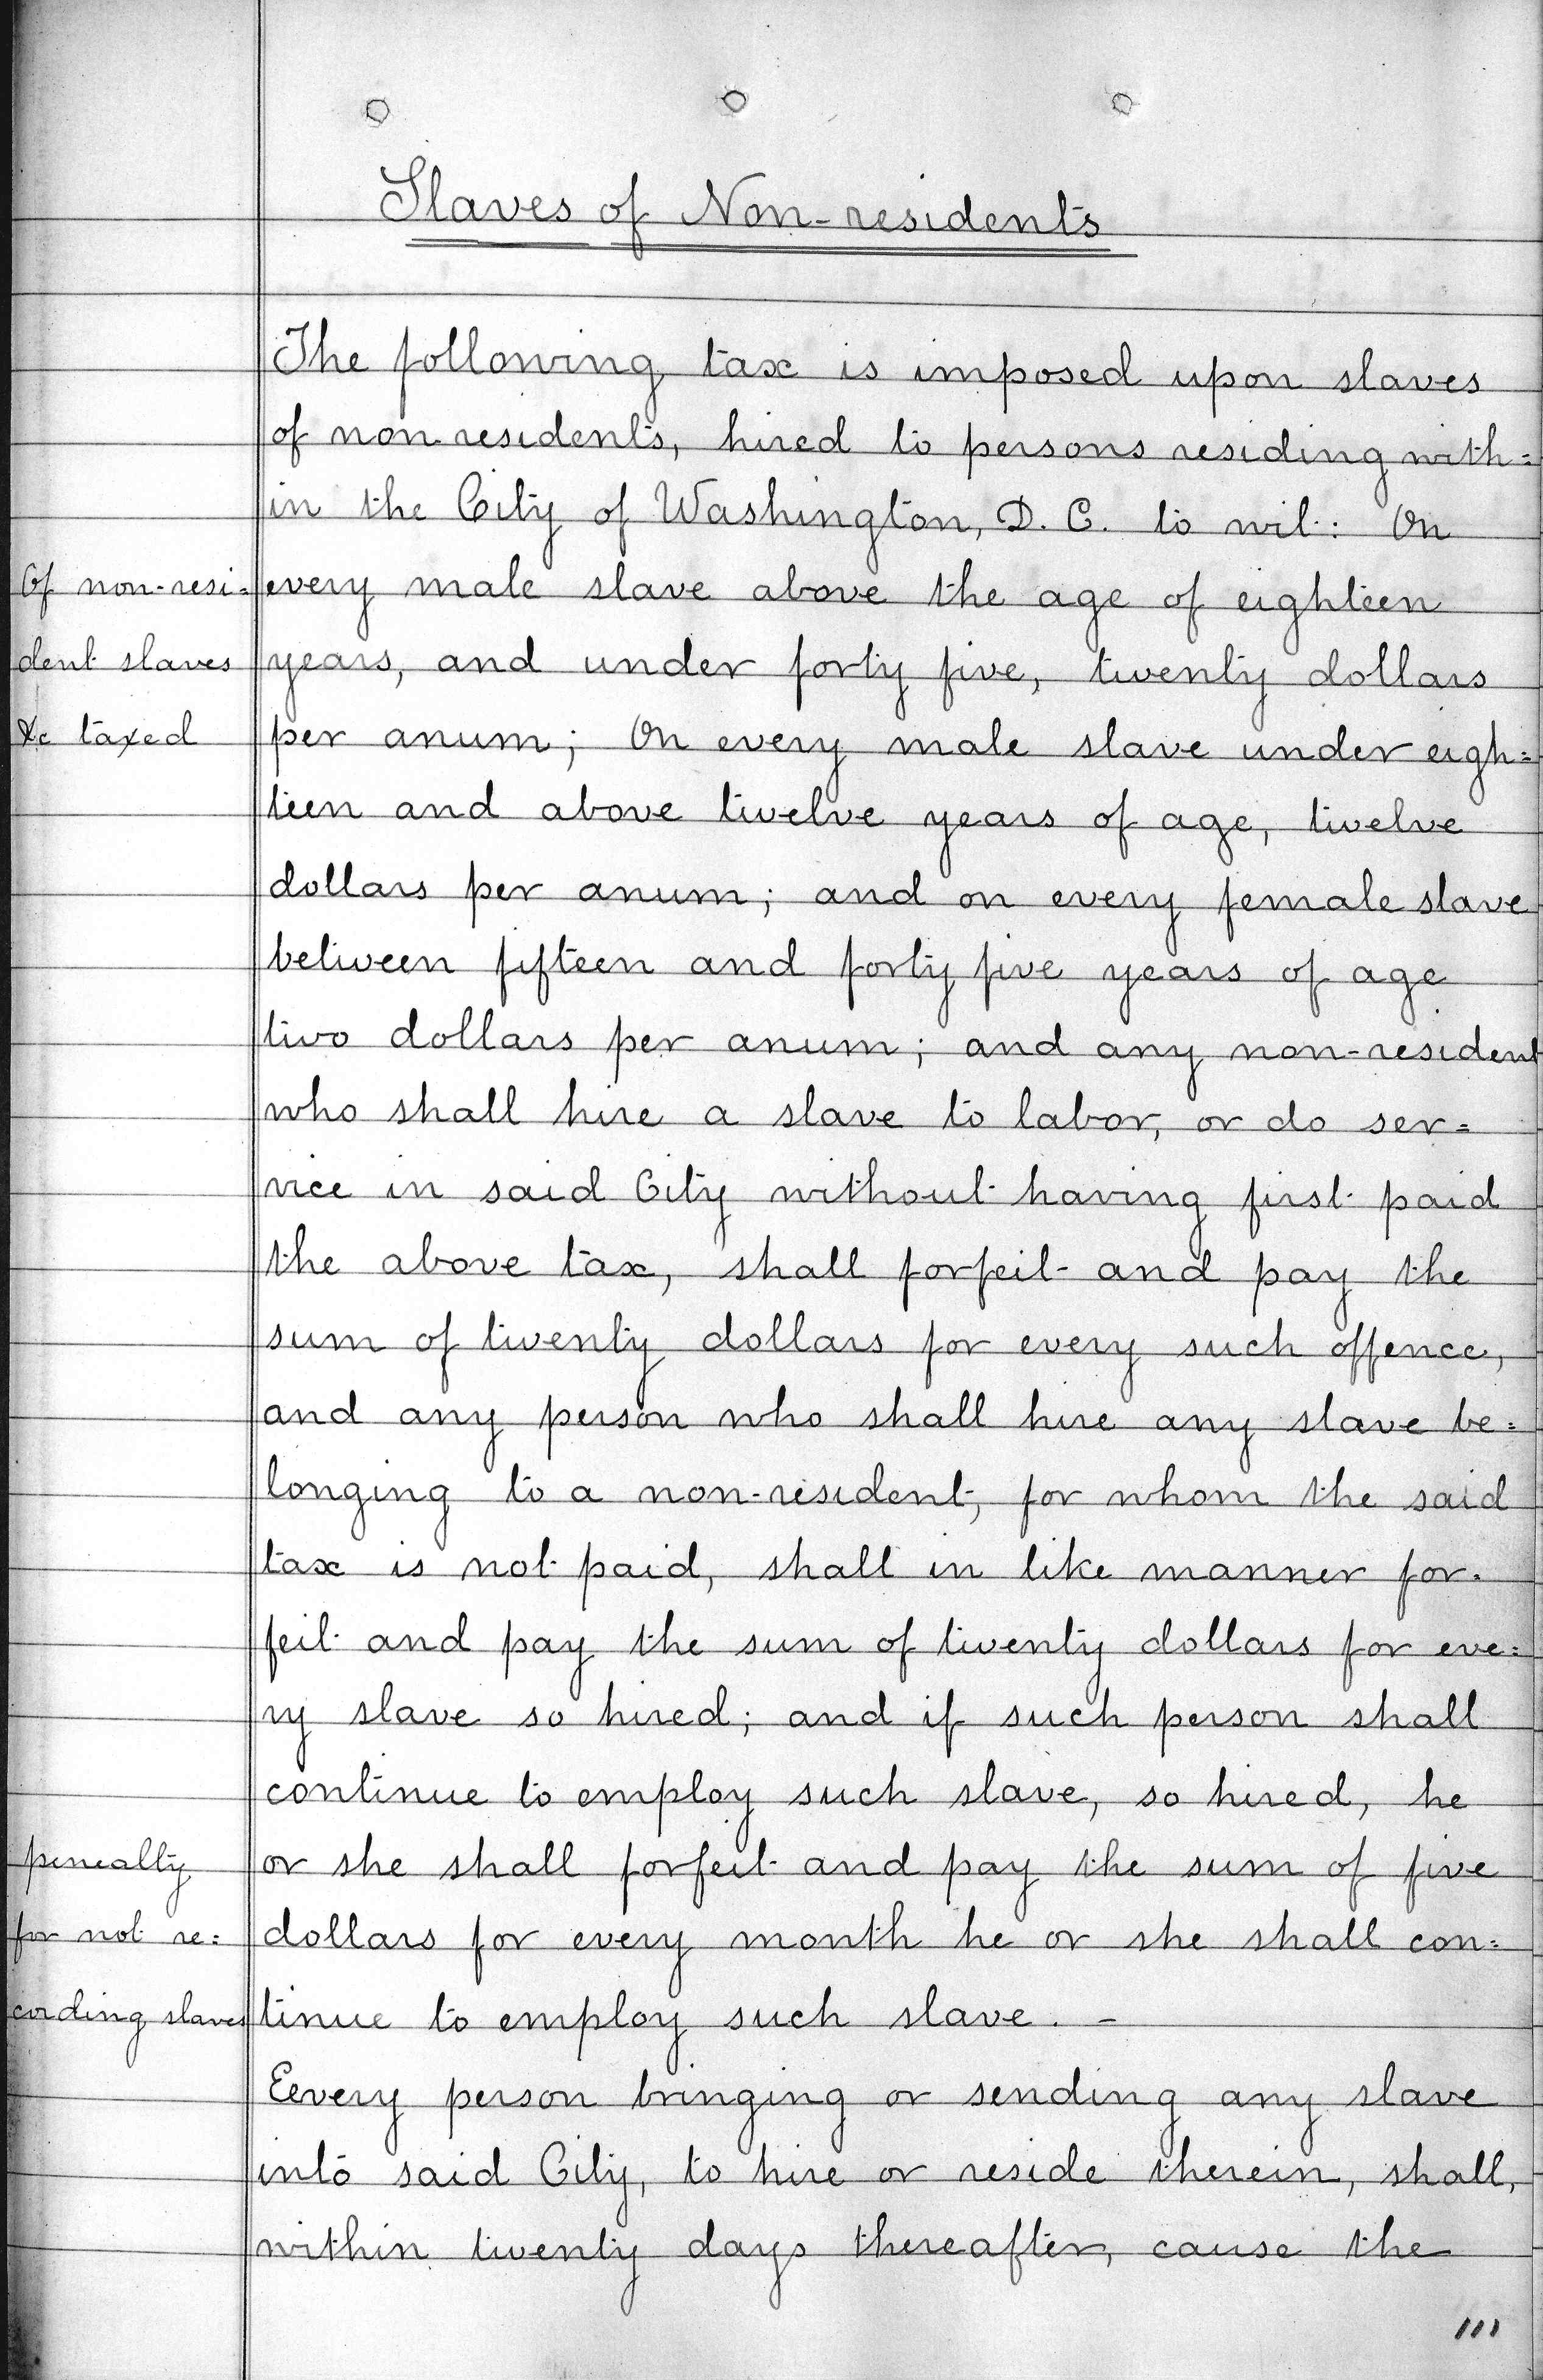 Slaves of Non-residents
The following tax is imposed upon slaves
of non residents, hired to persons residing with=
in the City of Washington, D. C. to wit: On
Of non-resi=
every male slave above the age of eighteen
dent slaves
years, and under forty five, twenty dollars
&c taxed
per anum; On every male slave under eigh=
teen and above twelve years of age, twelve
dollars per anum; and on every female slave
between fifteen and forty five years of age
two dollars per anum; and any non-resident
who shall hire a slave to labor, or do ser=
vice in said City without having first paid
the above tax, shall forfeit and pay the
sum of twenty dollars for every such offence,
and any person who shall hire any slave be=
longing to a non-resident, for whom the said
tax is not paid, shall in like manner for=
feit and pay the sum of twenty dollars for eve=
ry slave so hired; and if such person shall
continue to employ such slave, so hired, he
penealty
or she shall forfeit and pay the sum of five
for not re=
dollars for every month he or she shall con=
cording slaves
tinue to employ such slave. -
Eevery person bringing or sending any slave
into said City, to hire or reside therein, shall,
within twenty days thereafter, cause the
111